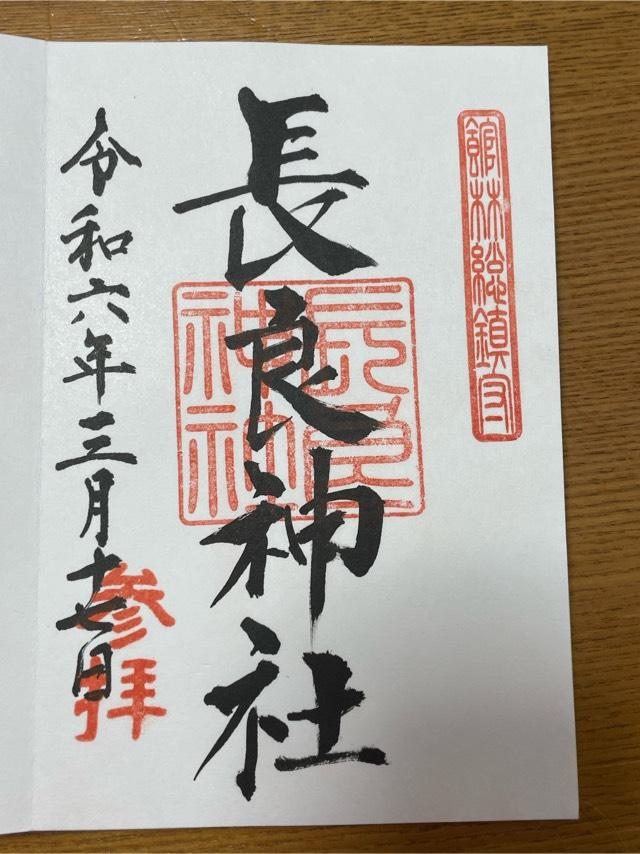 館林総鎮守
長良神社
長良神社
令和六年三月十七日
参拝